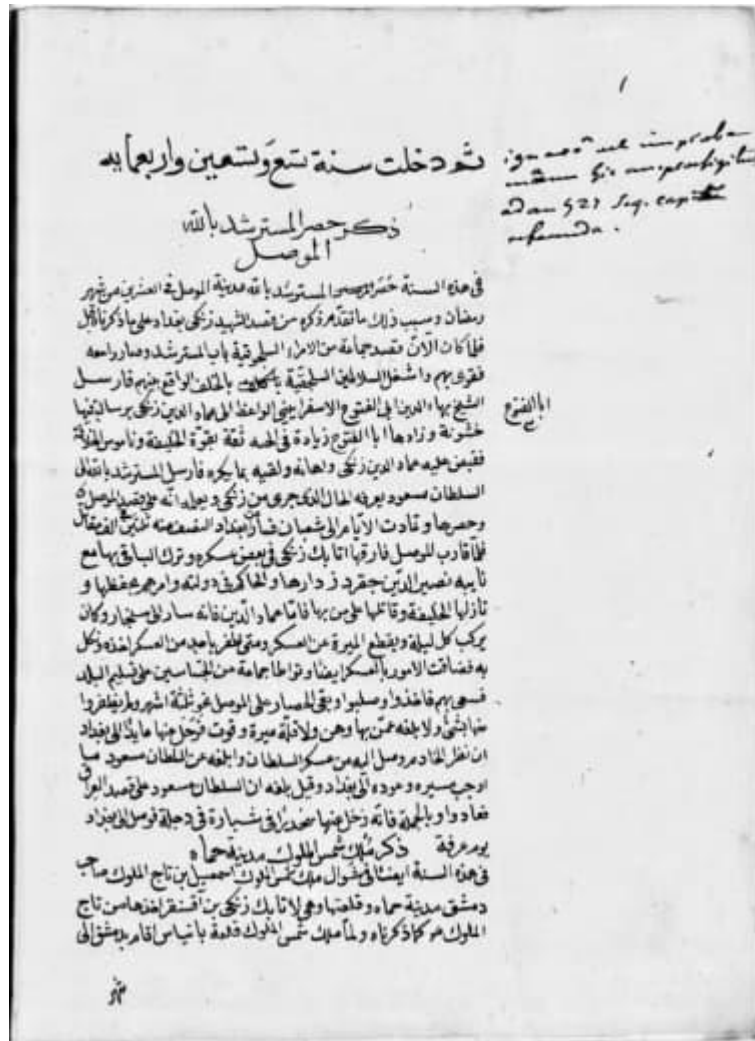 ثم دخلت سنة تسع وتسعين واربعمايه
ذكر حصر المسترشد بالله
الموصل
فى هذه السنة حصر المسترشد بالله مدينة الموصل فى العشرين من شهر
رمضان وسبب ذلك ما تقدم ذكره من قصد الشهيد زنكى بغداد على ما ذكرناه قبل
فلما كان الآن قصد جماعة من الامراء السلجوقية باب المسترشد وصاروا معه
فقوى بهم واشتغل السلاطين السلجوقية بالخلف الواقع بينهم فارسل
الشيخ بهاء الدين ابى الفتوح الاسفراينى الواعظ الى عماد الدين زنكى برسالة فيها
خشونة وزادها ابا الفتوح زيادة فى الجبه ثقة بقوة الخليفة وناموس الخلافة
ابا الفتوح
فقبض عليه عماد الدين زنكى واهانه ولقيه بما يكره فارسل المسترشد بالله الى
السلطان مسعود يعرفه الحال الذى جرى من زنكى ويعلمه انه على قصد الموصل
وحصرها وتمادت الآيام الى شعبان فسار عن بغداد النصف منه فى ثلثين الف مقاتل
فلما قارب الموصل فارقها اتابك زنكى فى بعض عسكره وترك الباقى بها مع
نايبه نصير الدين جقر دزدارها والحاكم فى دولته وامرهم بحفظها و
نازلها الخليفة وقاتلها على من بها فاما عماد الدين فانه سار الى سنجار وكان
يركب كل ليلة ويقطع الميرة عن العسكر ومتى ظفر باحد من العسكر اخذه ونكل
به فضاقت الامور بالعسكر ايضا وتواطا جماعة من الجصاصين على تسليم البلد
فسعى بهم فاخذوا وصلبوا وبقى الحصار على الموصل نحو ثلثة اشهر ولم يظفروا
منها بشئ ولا بلغه عمن بها وهن ولا قلة ميرة وقوت فرحل عنها عايدا الى بغداد
ان نظر الخادم وصل اليه من عسكر السلطان وابلغه عن السلطان مسعود ما
اوجب مسيره وعوده الى بغداد وقيل بلغه ان السلطان مسعود على قصد العراق
فعاد وبالجملة فانه رحل عنها منحدرا فى شبارة فى دجلة فوصل الى بغداد
يوم عرفة ذكر ملك شمس الملوك مدينة حماه
فى هذه السنة ايضا فى شوال ملك شمس الملوك اسمعيل بن تاج الملوك صاحب
دمشق مدينة حماه وقلعتها وهى لاتابك زنكى بن اقسنقر اخذها من تاج
الملوك كما ذكرناه ولما ملك شمس الملوك قلعة بانياس اقام بدمشق الى